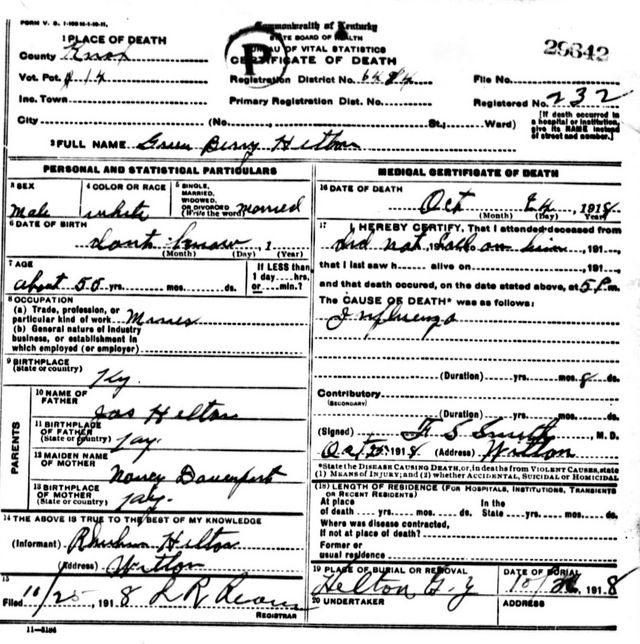 FORM V. S. 1
Commonwealth of Kentucky
STATE BOARD OF HEALTH
BUREAU OF VITAL STATISTICS
CERTIFICATE OF DEATH
P
29642
1 PLACE OF DEATH
County Knox
Vot. Pct. # 14
Inc. Town
City (No. St., Ward)
Registration District No. 6484
Primary Registration Dist. No.
File No.
Registered No. 232
[If death occurred in a hospital or institution, give its NAME instead of street and number.]
2 FULL NAME Green Berry Helton
PERSONAL AND STATISTICAL PARTICULARS
3 SEX
male
4 COLOR OR RACE
white
5 SINGLE, MARRIED, WIDOWED, OR DIVORCED (Write the word) married
6 DATE OF BIRTH
dont know, 1
(Month) (Day) (Year)
7 AGE
about 50 yrs. mos. ds.
If LESS than 1 day, hrs. or min.?
8 OCCUPATION
(a) Trade, profession, or particular kind of work
(b) General nature of industry business, or establishment in which employed (or employer)
9 BIRTHPLACE
(State or country)
Ky.
PARENTS
10 NAME OF FATHER
Jas Helton
11 BIRTHPLACE OF FATHER
(State or country)
12 MAIDEN NAME OF MOTHER
Nancy Davenport
13 BIRTHPLACE OF MOTHER
(State or country)
14 THE ABOVE IS TRUE TO THE BEST OF MY KNOWLEDGE
(Informant) Helton
(Address) Wilton
15
Filed 10/25, 1918 L R
REGISTRAR
11-3184
MEDICAL CERTIFICATE OF DEATH
16 DATE OF DEATH
Oct 24, 1918
(Month) (Day) (Year)
17 I HEREBY CERTIFY, That I attended deceased from
did not call on him, 191
that I last saw h alive on, 191
and that death occured, on the date stated above, at 5 P m.
The CAUSE OF DEATH* was as follows:
Influenza
(Duration) yrs. mos. 8 ds.
Contributory
(SECONDARY)
(Duration) yrs. mos. ds.
(Signed) F S Smith, M. D.
Oct 25, 1918 (Address) Wilton
*State the DISEASE CAUSING DEATH, or, in deaths from VIOLENT CAUSES, state
(1) MEANS OF INJURY; and (2) whether ACCIDENTAL, SUICIDAL or HOMICIDAL
(18) LENGTH OF RESIDENCE (FOR HOSPITALS, INSTITUTIONS, TRANSIENTS OR RECENT RESIDENTS)
At place of death yrs. mos. ds. In the State yrs. mos. ds.
Where was disease contracted,
If not at place of death?
Former or
usual residence
19 PLACE OF BURIAL OR REMOVAL
Helton G. Y
DATE OF BURIAL
1918
20 UNDERTAKER
ADDRESS